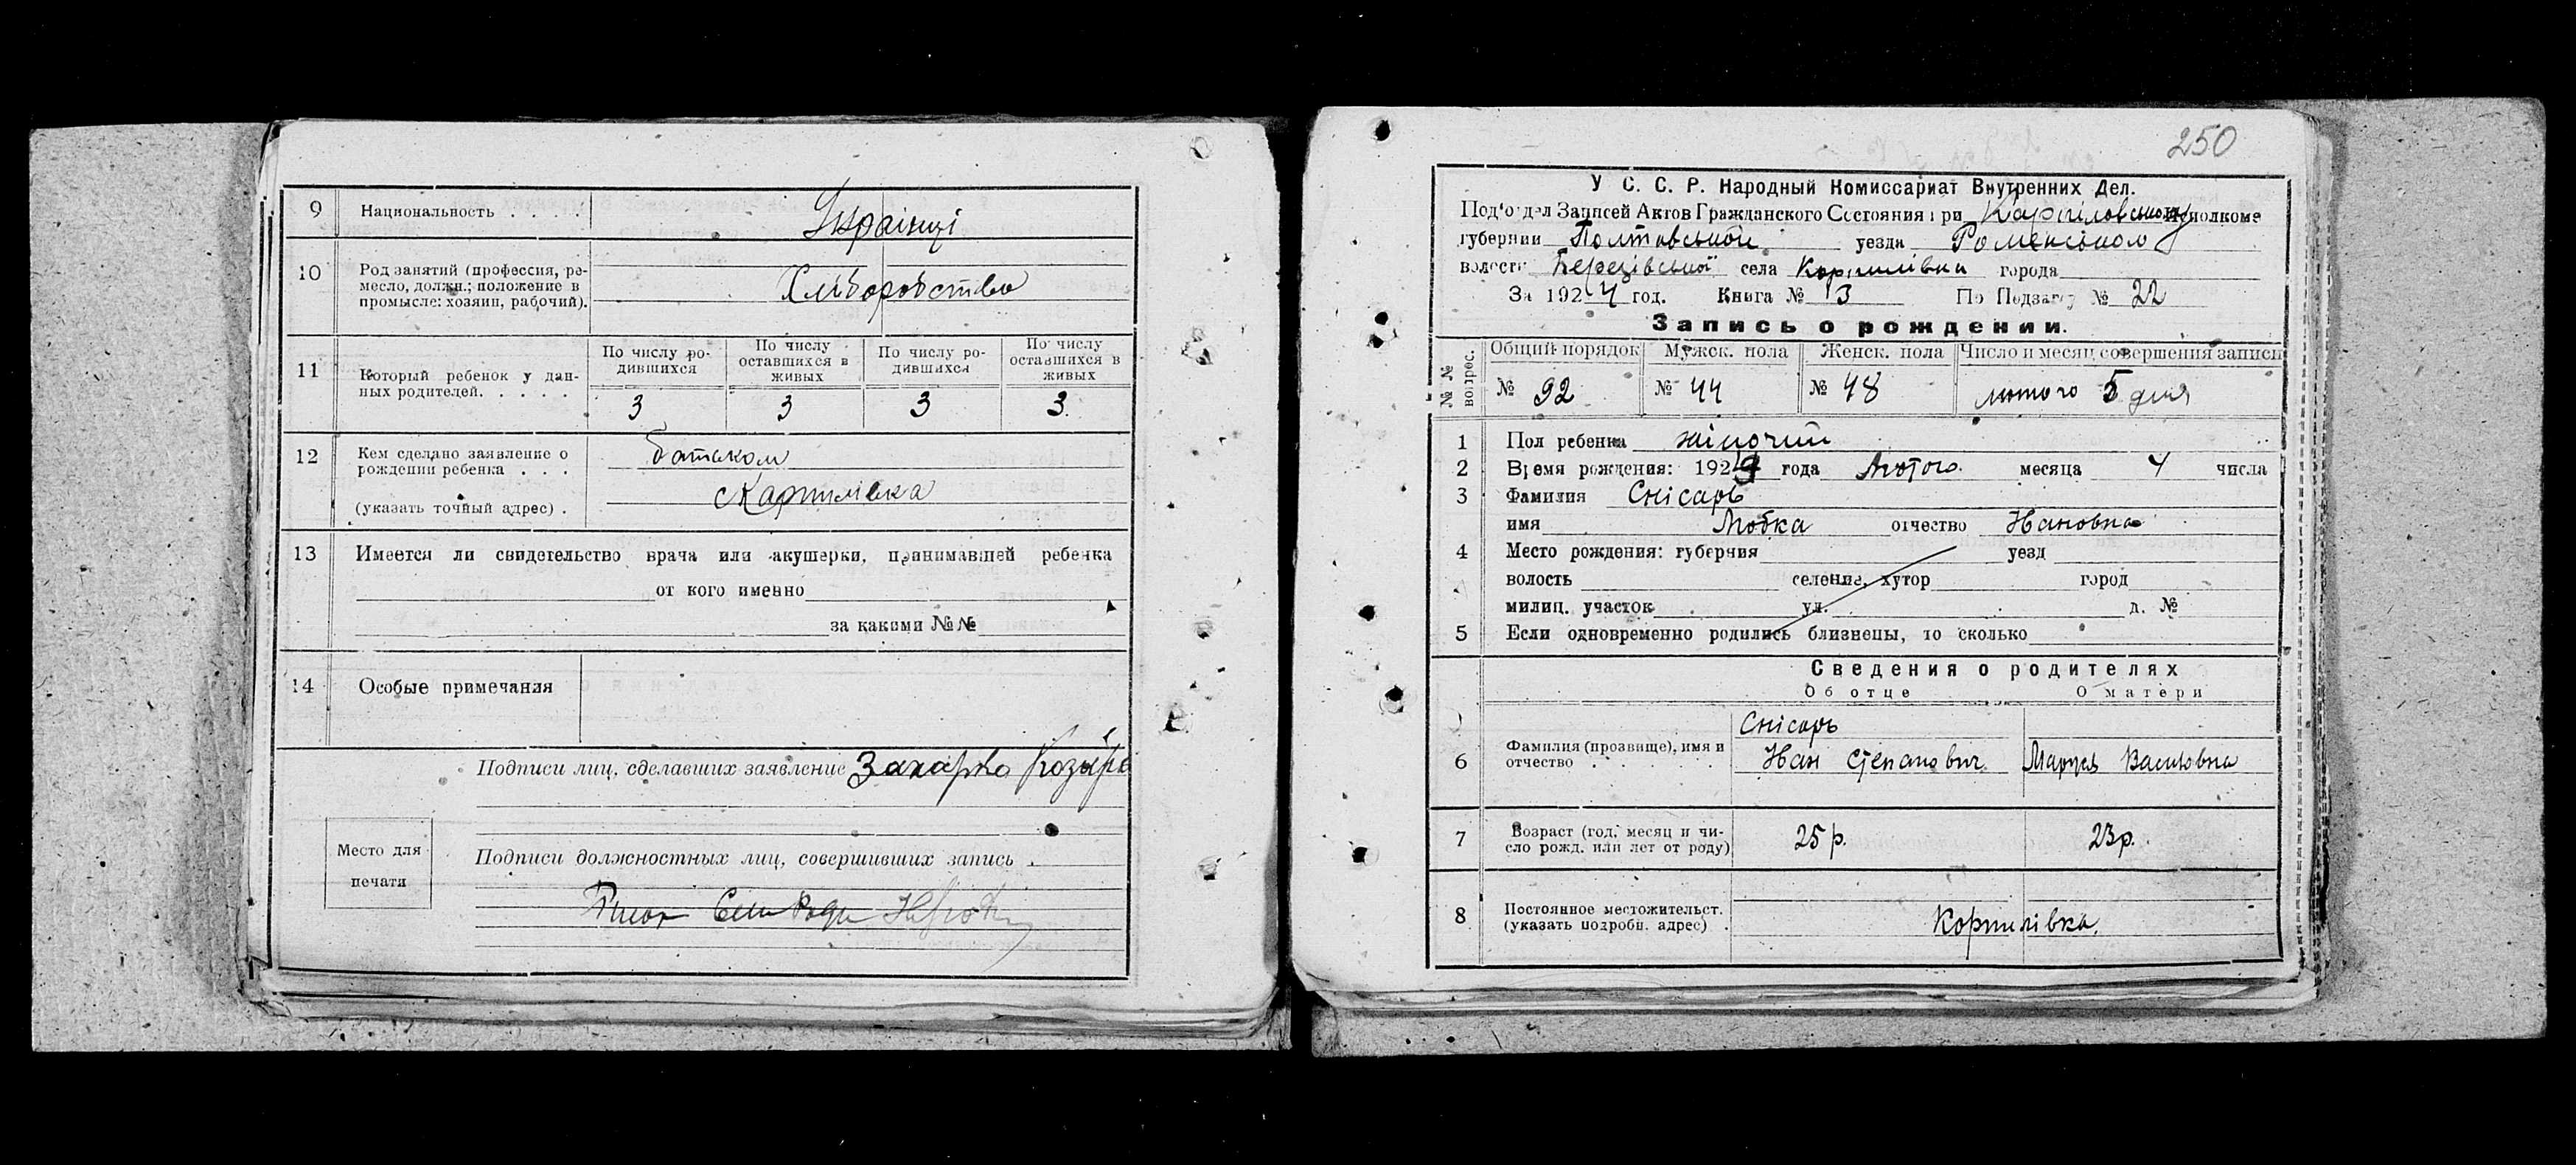 9 Национальность . . . . Українці
10 Род занятий (профессия, ре-
месло, должн.; положение в
промысле: хозяин, рабочий). Хліборобство
11 Который ребенок у дан-
ных родителей. . . . .
По числу ро-
дившихся
По числу
оставшихся в
живых
По числу ро-
дившихся
По числу
оставшихся в
живых
3 3 3 3.
12 Кем сделано заявление о
рождении ребенка . . . батьком
(указать точный адрес) . с Картилівка
13 Имеется ли свидетельство врача или акушерки, принимавшей ребенка
от кого именно
за какими №№
14 Особые примечания
Подписи лиц, сделавших заявление Захарко Козырь
Место для
печати
Подписи должностных лиц, совершивших запись .
250
У С. С. Р. Народный Комиссариат Внутренних Дел.
Под'отдел Записей Актов Гражданского Состояния при Исполкоме
губернии Полтавської уезда Роменського
волости Березівської села города
За 1924 год. Книга № 3 По Подзагсу № 22
Запись о рождении.
№ № вопрос.
Общий порядок Мужск. пола Женск. пола Число и месяц совершения записи
№ 92 № 44 № 48 лютого 5 дня
1 Пол ребенка жіночий
2 Время рождения: 1924 года Лютого месяца 4 числа
3 Фамилия Снісарь
имя Любка отчество Ивановна
4 Место рождения: губерния уезд
волость селение, хутор город
милиц. участок ул. д. №
5 Если одновременно родились близнецы, то сколько
Сведения о родителях
Об отце О матери
6 Фамилия (прозвище), имя и
отчество . . . . . . .
Снісарь
Иван Степанович Маруся Василовна
7 Возраст (год, месяц и чи-
сло рожд. или лет от роду) 25 р. 23 р.
8 Постоянное местожительст.
(указать подробн. адрес) . Корпилівка.